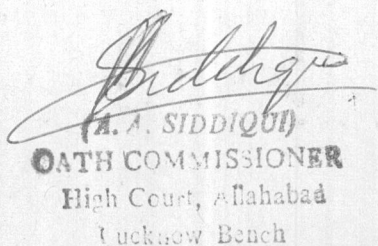 Siddiqui
(A. A. SIDDIQUI)
OATH COMMISSIONER
High Court, Allahabad
Lucknow Bench